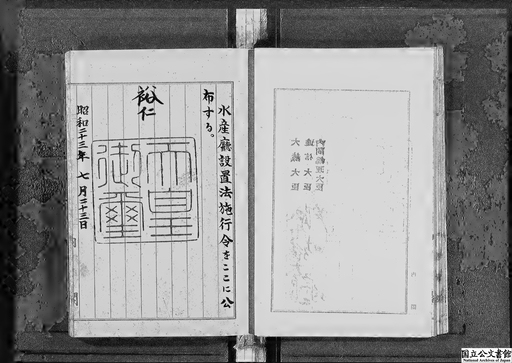 水産廳設置法施行令をここに公
布する。
裕仁
天皇
御璽
昭和二十三年 七月二十三日
大臣
大臣
大藏大臣
国立公文書館
National Archives of Japan